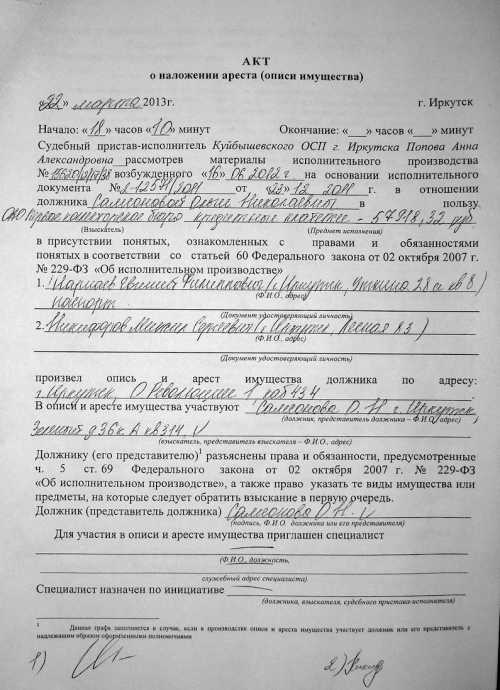 АКТ
о наложении ареста (описи имущества)
«22» марта 2013г. г. Иркутск
Начало: «18» часов «10» минут Окончание: «___» часов «___» минут
Судебный пристав-исполнитель Куйбышевского ОСП г. Иркутска Попова Анна
Александровна рассмотрев материалы исполнительного производства
№ возбужденного «16» 06 2012 г. на основании исполнительного
документа № 2-1257/2011 от «23» 12 2011 г. в отношении
должника Самсоновой Николаевны в пользу
ОАО Первое коллекторское бюро кредитные платежи - 57918,32 руб
(Взыскатель) (Предмет исполнения)
в присутствии понятых, ознакомленных с правами и обязанностями
понятых в соответствии со статьей 60 Федерального закона от 02 октября 2007 г.
№ 229-ФЗ «Об исполнительном производстве»
1. Филиппович г. Иркутск, 28 кв 8)
(Ф.И.О., адрес)
паспорт
(Документ удостоверяющий личность)
2. Никифоров Михаил Сергеевич г. Иркутск, Лесная
(Ф.И.О., адрес)
(Документ удостоверяющий личность)
произвел опись и арест имущества должника по адресу:
г. Иркутск, О Революции 1, каб 434
В описи и аресте имущества участвуют Самсонова О. Н г. Иркутск,
(должник, представитель должника – Ф.И.О., адрес)
V
(взыскатель, представитель взыскателя – Ф.И.О., адрес)
Должнику (его представителю)1 разъяснены права и обязанности, предусмотренные
ч. 5 ст. 69 Федерального закона от 02 октября 2007 г. № 229-ФЗ
«Об исполнительном производстве», а также право указать те виды имущества или
предметы, на которые следует обратить взыскание в первую очередь.
Должник (представитель должника) Самсонова О Н. V
(подпись, Ф.И.О. должника или его представителя)
Для участия в описи и аресте имущества приглашен специалист
(Ф.И.О., должность,
служебный адрес специалиста)
Специалист назначен по инициативе
(должника, взыскателя, судебного пристава-исполнителя)
1 Данная графа заполняется в случае, если в производстве описи и ареста имущества участвует должник или его представитель с
надлежащим образом оформленными полномочиями
1) 2)